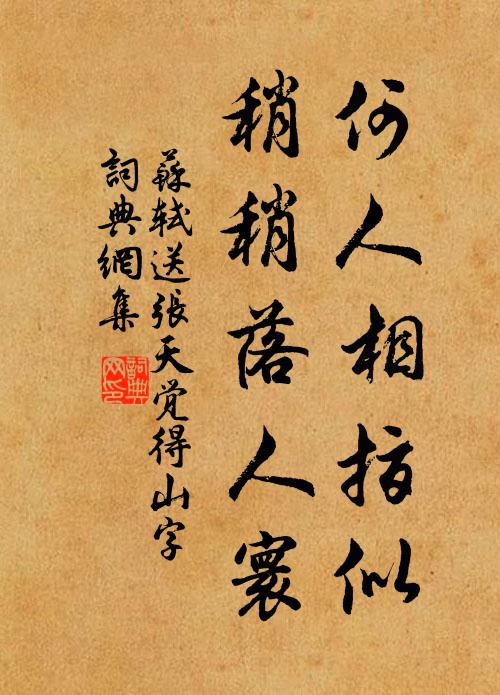 何人相指似
稍稍落人寰
蘇軾送張天觉得山字
詞典網集
詞典网印